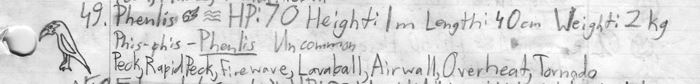 49. Phenlis HP: 70 Height: 1m Length: 40cm Weight: 2kg
Phis-phis - Phenlis Uncommon
Peck, Rapid Peck, Firewave, Lavaball, Airwall, Overheat, Tornado